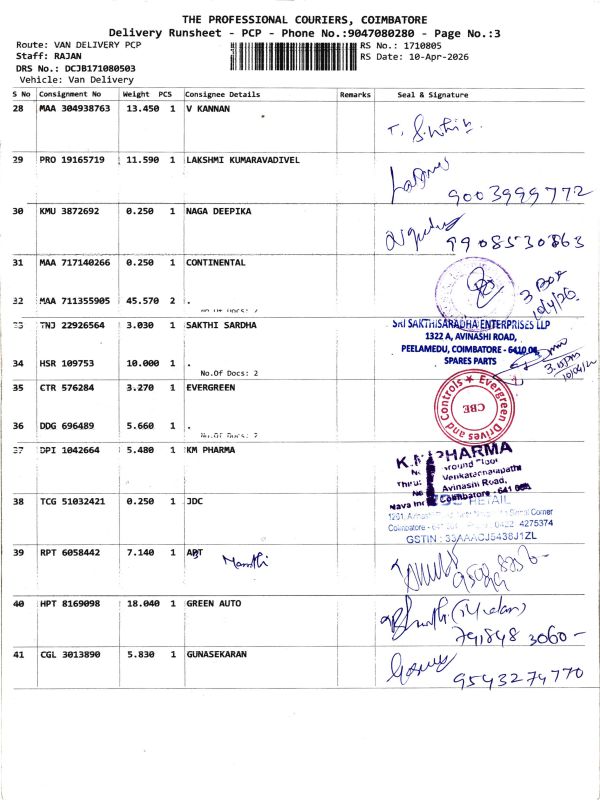 THE PROFESSIONAL COURIERS, COIMBATORE
Delivery Runsheet - PCP - Phone No.:9047080280 - Page No.:3
Route: VAN DELIVERY PCP
RS No.: 1710805
Staff: RAJAN
RS Date: 10-Apr-2026
DRS No.: DCJB171080503
Vehicle: Van Delivery
S No Consignment No Weight PCS Consignee Details Remarks Seal & Signature
28 MAA 304938763 13.450 1 V KANNAN
29 PRO 19165719 11.590 1 LAKSHMI KUMARAVADIVEL
9003999772
30 KMU 3872692 0.250 1 NAGA DEEPIKA
9908530863
31 MAA 717140266 0.250 1 CONTINENTAL
3 Box
10/4/26
32 MAA 711355905 45.570 2 .
No.Of Docs: 2
33 TNJ 22926564 3.030 1 SAKTHI SARDHA
SRI SAKTHISARADHA ENTERPRISES LLP
1322 A, AVINASHI ROAD,
PEELAMEDU, COIMBATORE - 641004
SPARES PARTS
34 HSR 109753 10.000 1 .
No.Of Docs: 2
35 CTR 576284 3.270 1 EVERGREEN
Evergreen Drives and Controls
CBE
36 DDG 696489 5.660 1 .
No.Of Docs: 2
37 DPI 1042664 5.480 1 KM PHARMA
K.M PHARMA
Ground Floor
Venkatachalapathi
Avinashi Road,
Coimbatore - 641
38 TCG 51032421 0.250 1 JDC
RETAIL
Signal Corner
Coimbatore - 0422 4275374
GSTIN : 33AAACJ5438J1ZL
39 RPT 6058442 7.140 1 APT
40 HPT 8169098 18.040 1 GREEN AUTO
791848 3060-
41 CGL 3013890 5.830 1 GUNASEKARAN
9543274770